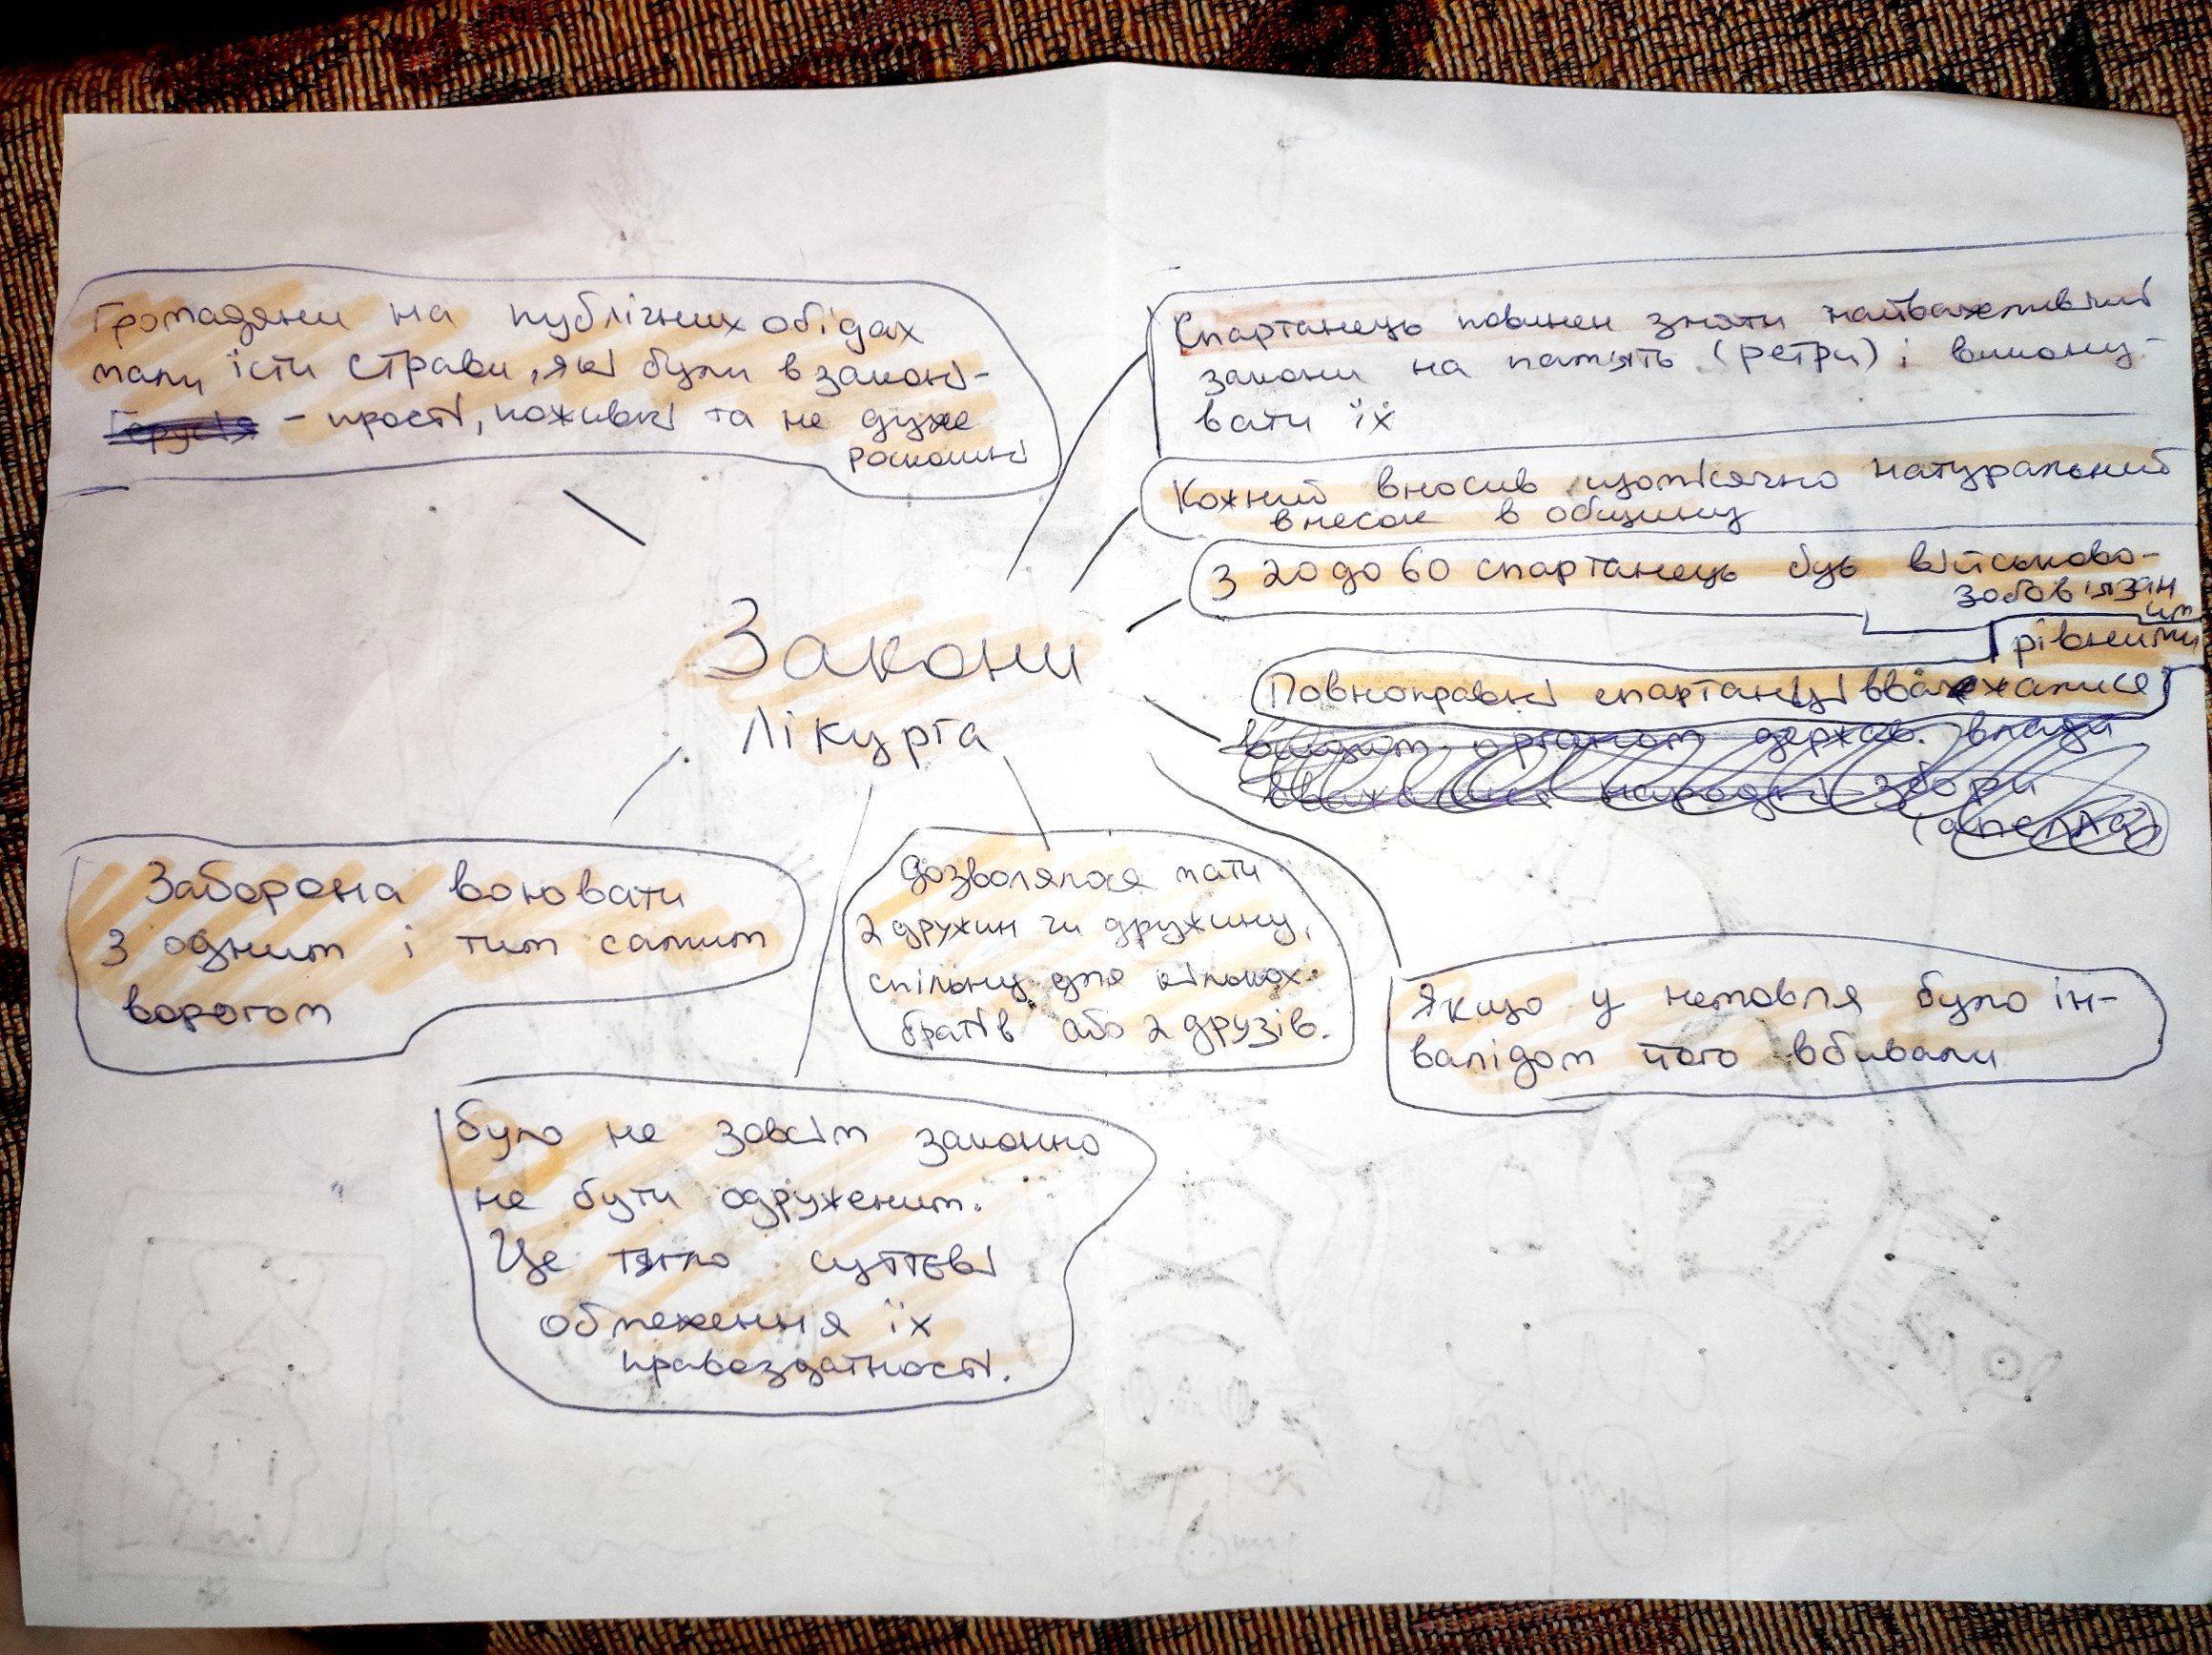 Громадяни на публічних обідах
мали їсти страви, які були в законі-
Герусія - прості, поживні та не дуже
роскошні
Спартанець повинен знати найважливіші
закони на пам'ять (ретри) і викону-
вати їх
Кожний вносив щомісячно натуральний
внесок в общину
З 20 до 60 спартанець був військово-
зобов'язан
им
рівними
Повноправні спартанці вважались
органом держав. влади
народні збори
(апелла)
Закони
Лікурга
Заборона воювати
з одним і тим самим
ворогом
Дозволялося мати
2 дружин чи дружину,
спільну для кількох
братів або 2 друзів.
Якщо у немовля було ін-
валідом його вбивали
Було не зовсім законно
не бути одруженим.
Це тягло суттєві
обмеження їх
правоздатності.